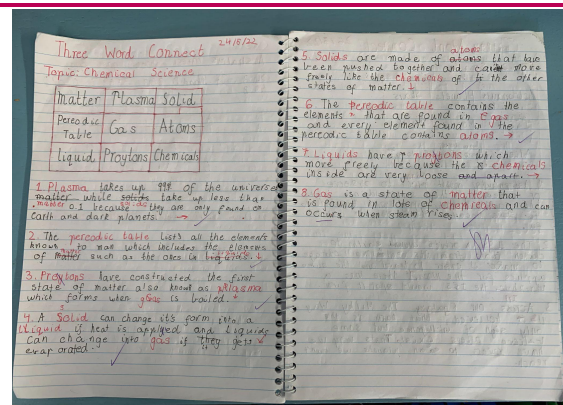 24/8/22
Three Word Connect
Topic: Chemical Science
Matter Plasma Solid
Pereodic Table Gas Atoms
Liquid Proytons Chemicals
1. Plasma takes up 99% of the universe
matter while solids take up less than
0.1 because they are only found on
earth and dark planets.
2. The pereodic table lists all the elements
known to man which includes the elements
of matter such as the ones in
3. Proytons have constructed the first
state of matter also known as plasma
which forms when gas is boiled.
4. A Solid can change it's form into a
liquid if heat is applyed and liquids
can change into gas if they get
evaporated.
atoms
5. Solids are made of atoms that have
been pushed together and can't move
freely like the chemicals of the other
states of matter.
6 The pereodic table contains the
elements that are found in gas
and every element found in the
pereodic table contains atoms.
7. Liquids have proytons which
move more freely because the chemicals
inside are very loose and apart.
8. Gas is a state of matter that
is found in lots of chemicals and can
occurs when steam rises.